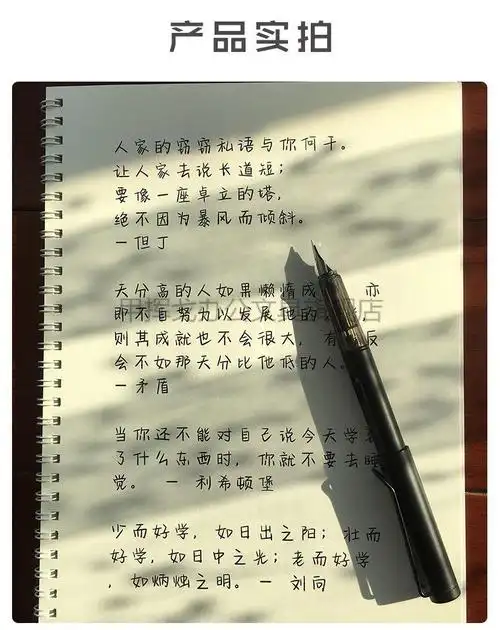 产品实拍
人家的窃窃私语与你何干。
让人家去说长道短；
要像一座卓立的塔，
绝不因为暴风而倾斜。
一但丁
天分高的人如果懒惰成 亦
即不自努力以发展他的
则其成就也不会很大，有 反
会不如那天分比他低的人。
一矛盾
当你还不能对自己说今天学
了什么东西时，你就不要去睡
觉。 一 利希顿堡
少而好学，如日出之阳；壮而
好学，如日中之光；老而好学
，如炳烛之明。一 刘向